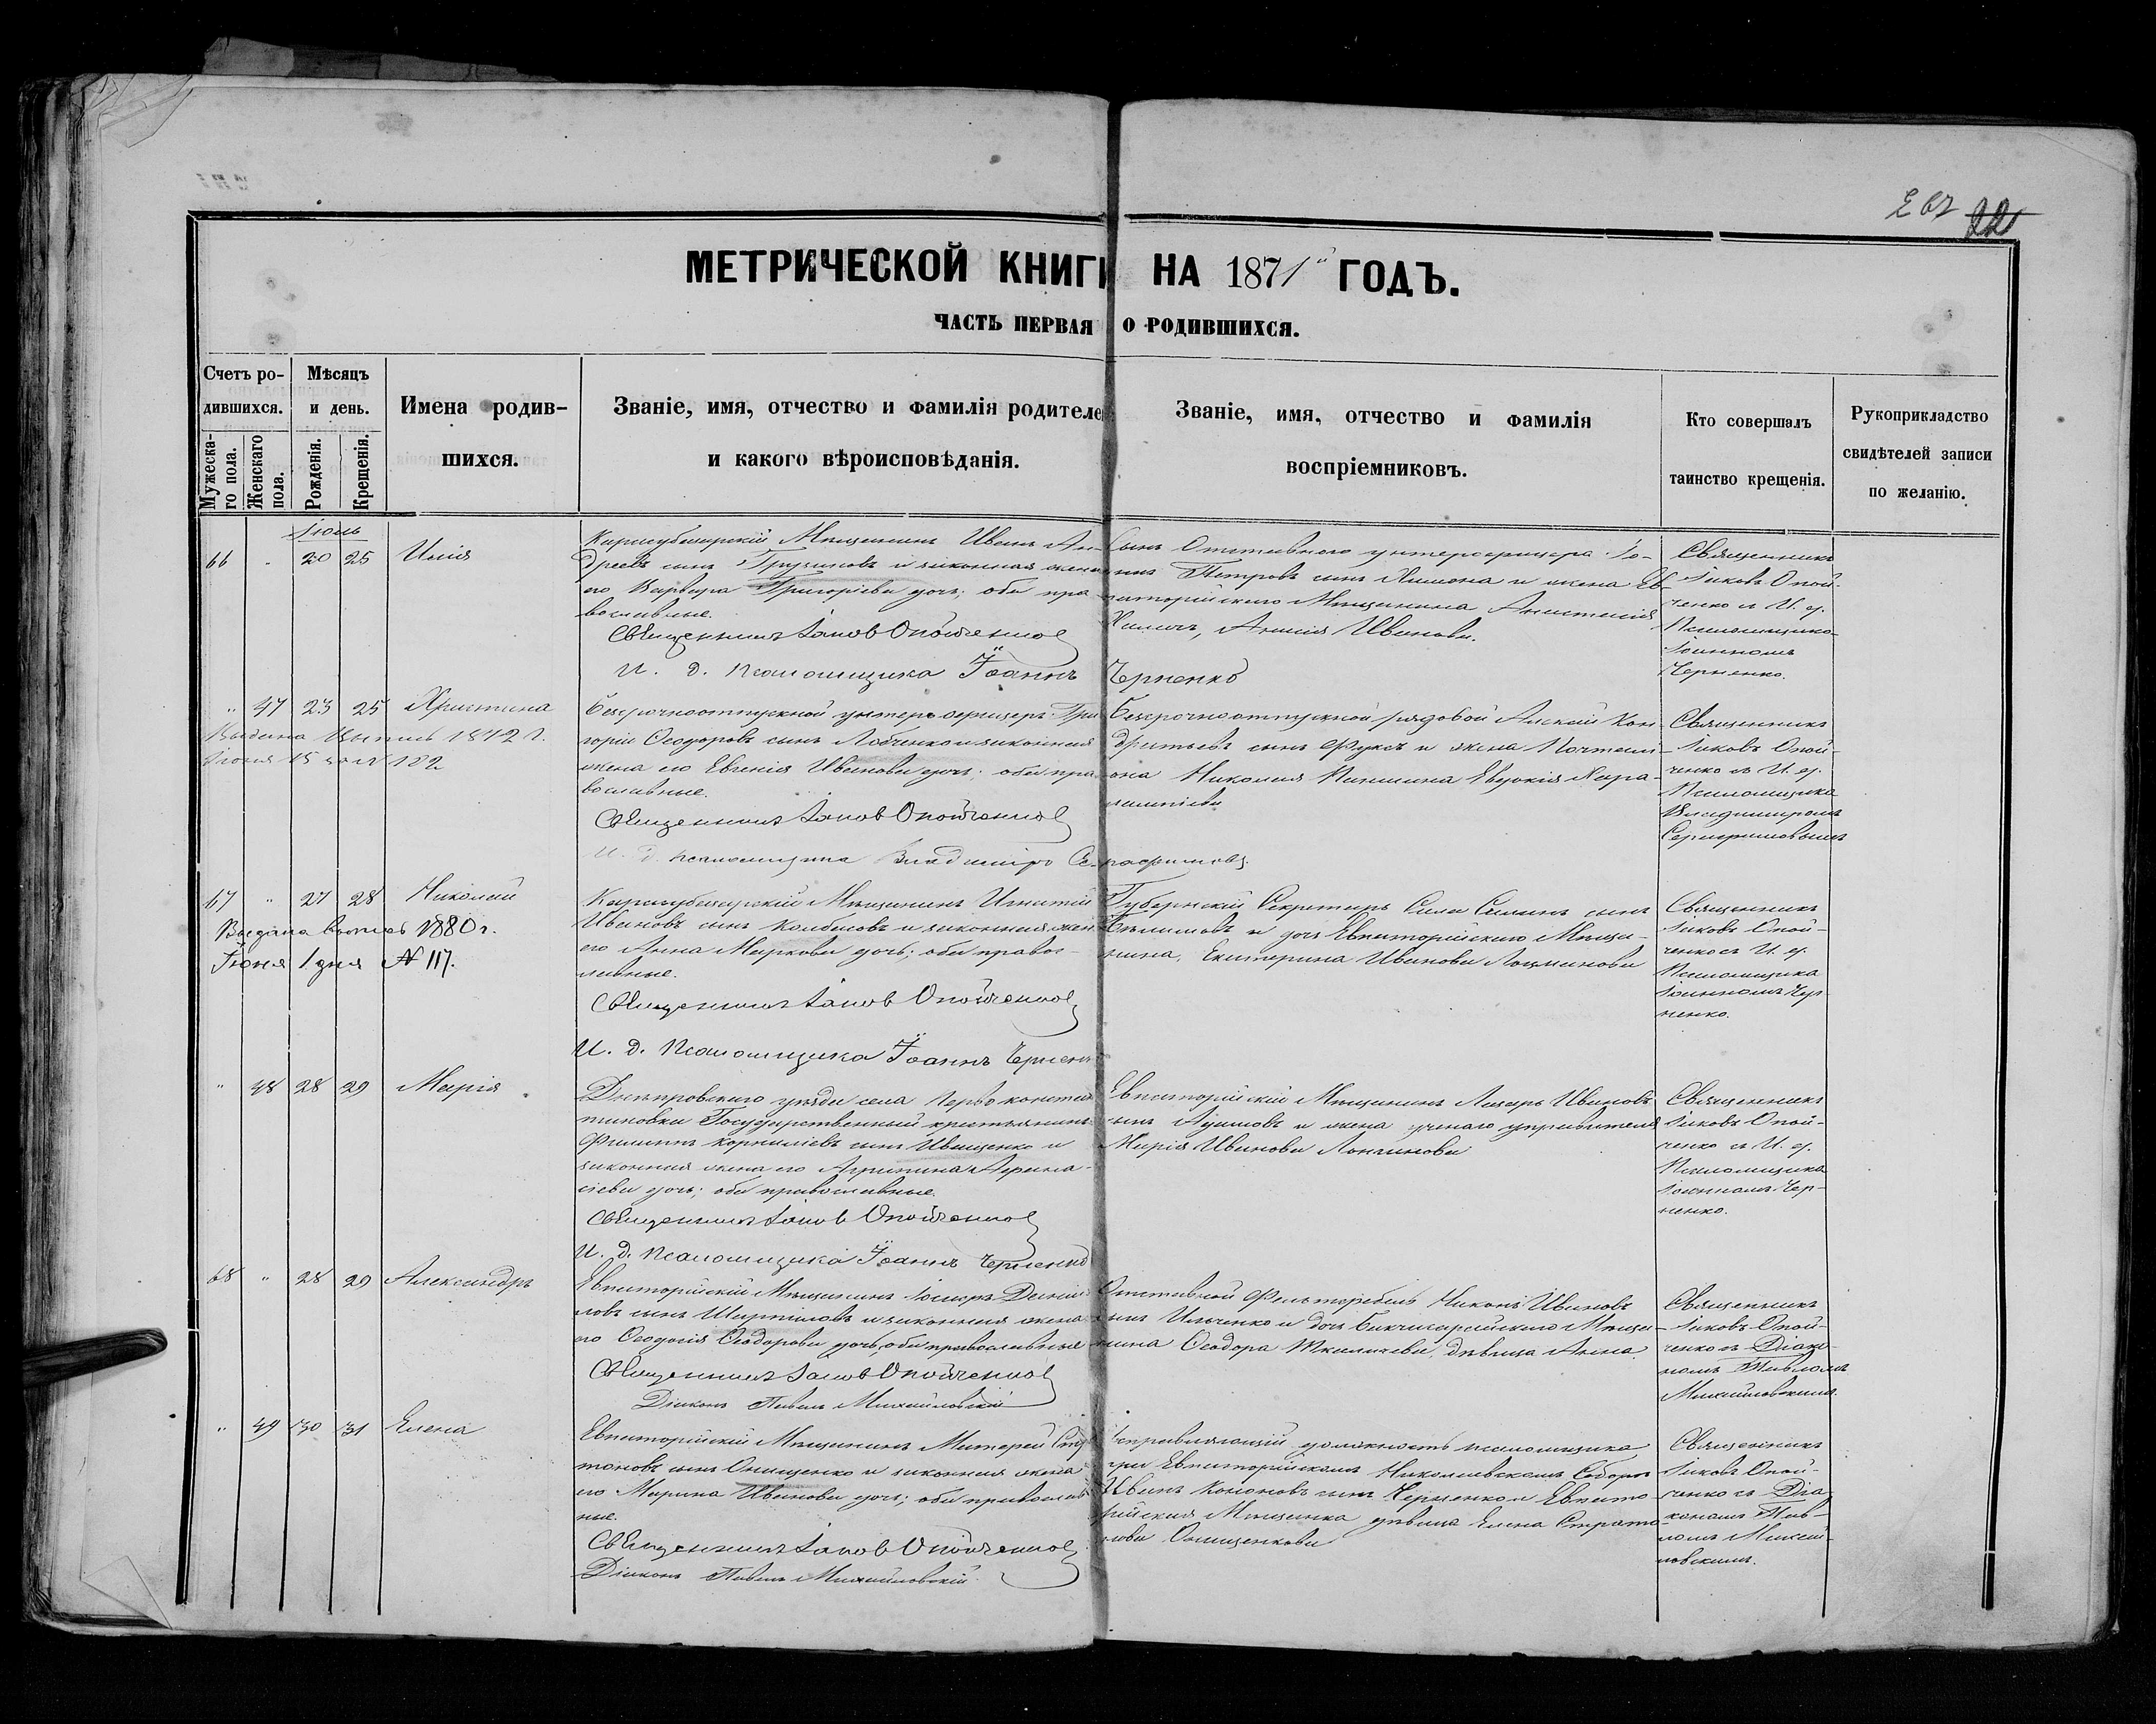 267 22
МЕТРИЧЕСКОЙ КНИГИ НА 1871й ГОДЪ.
ЧАСТЬ ПЕРВАЯ О РОДИВШИХСЯ.
Счетъ ро-
дившихся.
Мужеска-
го пола.
Женскаго
пола.
Мѣсяцъ
и день.
Рожденія.
Крещенія.
Имена родив-
шихся.
Званіе, имя, отчество и фамилія родителе
и какого вѣроисповѣданія.
Званіе, имя, отчество и фамилія
воспріемниковъ.
Кто совершалъ
таинство крещенія.
Рукоприкладство
свидѣтелей записи
по желанію.
Іюль
66 20 25 Илія
Карасубазарскій Мѣщанинъ Иванъ Ан-
дреевъ сынъ Грузиновъ и законная жена
его Варвара Григорьева дочь; оба пра-
вославные.
Священникъ Іаковъ Опойченко
И. д. Псаломщика Іоаннъ Черненко
Сынъ Отставного унтерофицера
Петровъ сынъ и жена Ев-
паторійскаго Мѣщанина Анастасія
Иванова.
Священникъ
Іаковъ Опой-
ченко съ И. д.
Псаломщика
Іоанномъ
Черненко.
" 47 23 25 Христина
Выдана Выпись 1872 г.
Іюня 15 за № 182
Безсрочноотпускной унтеръ офицеръ Гри
горій Ѳеодоровъ сынъ Лобченко и законная
жена его Евгенія Иванова дочь; оба пра-
вославные.
Священникъ Іаковъ Опойченко
И. д. псаломщика Владиміръ Серафимовъ.
Безсрочноотпускной рядовой Кон-
дратьевъ сынъ Фуксъ и жена
Николая Евдокія Хара-
лампіева
Священникъ
Іаковъ Опой-
ченко съ И. д.
Псаломщика
Владиміромъ
Серафимовымъ
67 " 27 28 Николай
Выдана выпись 1880 г.
Іюня 1 дня № 117.
Карасубазарскій Мѣщанинъ Игнатій
Ивановъ сынъ Колбасовъ и законная жена
его Анна Маркова дочь; оба право-
славные.
Священникъ Іаковъ Опойченко
И. д. Псаломщика Іоаннъ Черненко
Губернскій Секретарь Сила Силинъ сынъ
и дочь Евпаторійскаго Мѣща-
нина, Екатерина Иванова
Священникъ
Іаковъ Опой-
ченко съ И. д.
Псаломщика
Іоанномъ Чер-
ненко.
" 48 28 29 Марія
Днѣпровскаго уѣзда села Черво констан
тиновки Государственный крестьянинъ
Филиппъ Корниліевъ сынъ Иващенко и
законная жена его Агрипина Афана-
сіева дочь; оба православные.
Священникъ Іаковъ Опойченко
И. д. Псаломщика Іоаннъ Черненко
Евпаторійскій Мѣщанинъ Лазарь Ивановъ
сынъ и жена ученаго управителя
Марія Иванова Лонгинова
Священникъ
Іаковъ Опой-
ченко съ И. д.
Псаломщика
Іоанномъ Чер-
ненко.
68 " 28 29 Александръ
Евпаторійскій Мѣщанинъ Іосифъ Дани
ловъ сынъ и законная жена
его Ѳеодосія Ѳеодорова дочь; оба православные
Священникъ Іаковъ Опойченко
Діаконъ Павелъ Михайловскій
Отставной Фельтфебель Никонъ Ивановъ
сынъ Ильченко и дочь Бахчисарайскаго Мѣща-
нина Ѳеодора дѣвица Анна.
Священникъ
Іаковъ Опой-
ченко съ Діако-
номъ Павломъ
Михайловскимъ.
" 49 30 31 Елена
Евпаторійскій Мѣщанинъ Матфей
тоновъ сынъ Онищенко и законная жена
его Марина Иванова дочь; оба православ
ные.
Священникъ Іаковъ Опойченко
Діаконъ Павелъ Михайловскій
Исправляющій должность псаломщика
при Евпаторійскомъ Николаевскомъ Соборѣ
Иванъ Кононовъ сынъ Черненко и Евпато
рійская Мѣщанка дѣвица Елена
Онищенкова
Священникъ
Іаковъ Опой-
ченко съ Діа-
кономъ Пав-
ломъ Михай-
ловскимъ.